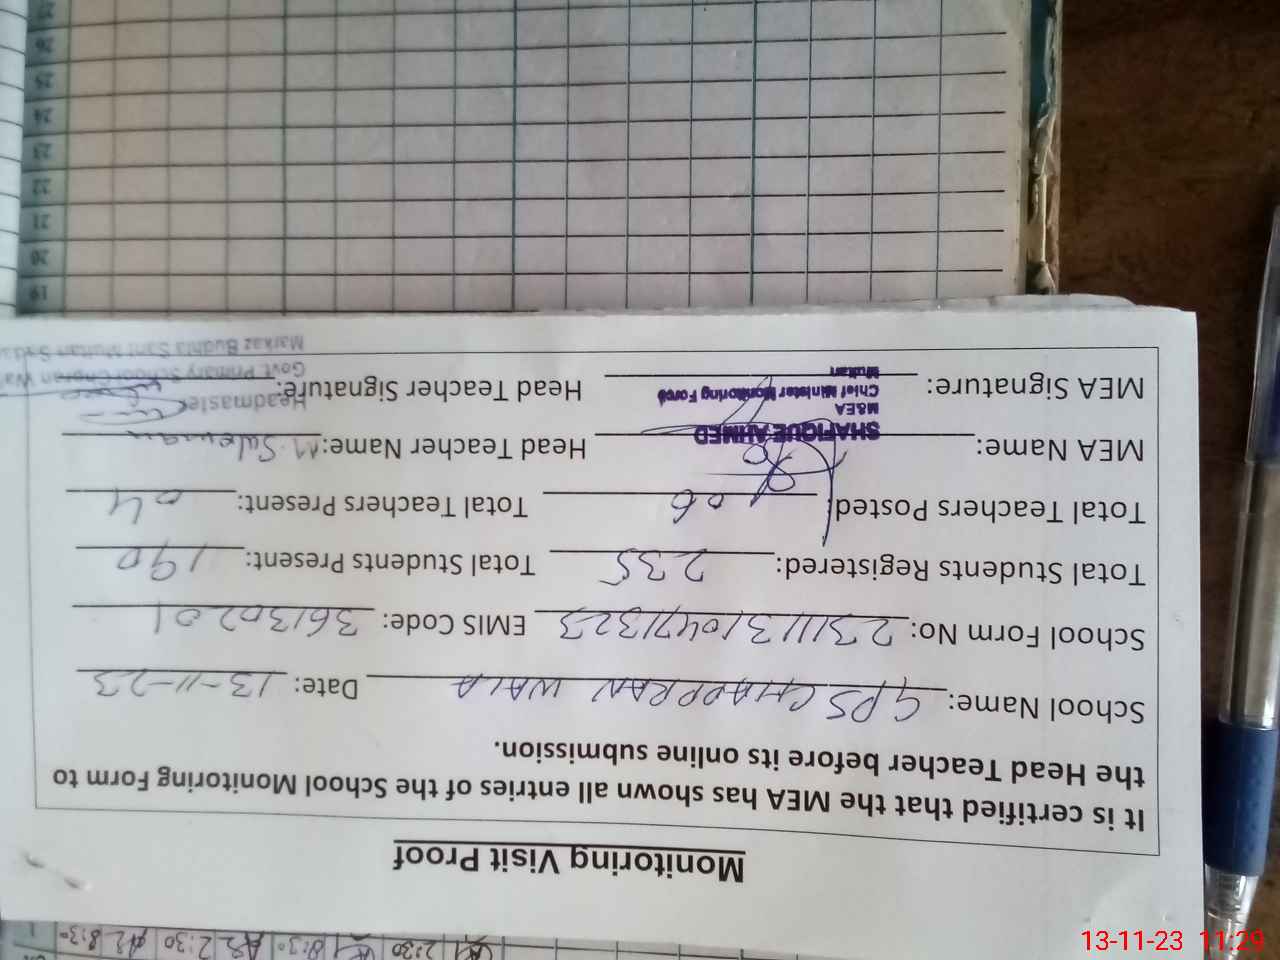 Monitoring Visit Proof
It is certified that the MEA has shown all entries of the School Monitoring Form to
the Head Teacher before its online submission.
School Name: GPS CHAPPRAN WALA Date: 13-11-23
School Form No: 23111310471323 EMIS Code: 36130201
Total Students Registered: 235 Total Students Present: 190
Total Teachers Posted: 06 Total Teachers Present: 04
MEA Name: SHAFIQUE AHMED Head Teacher Name: M. Suleman
M&EA
Chief Minister Monitoring Force
Multan
MEA Signature: Head Teacher Signature:
Headmaster
Govt. Primary School
Markaz Budhla Sant Multan
19
20
21
22
23
24
25
26
27
2:30 8:30 2:30 8:30
13-11-23 11:29